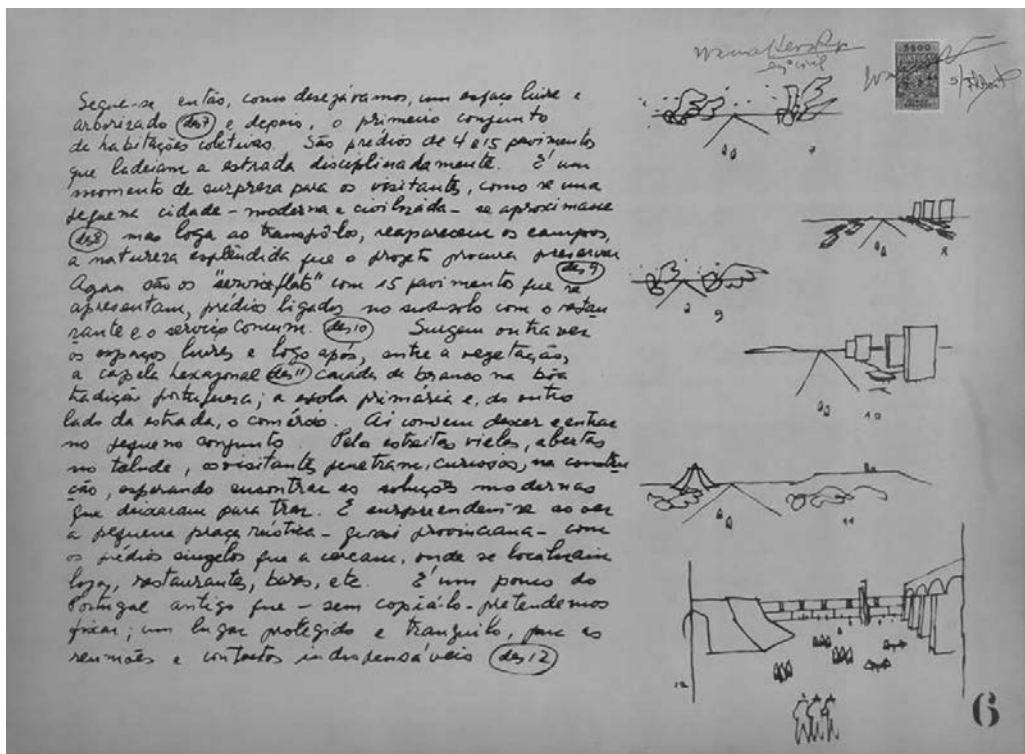 Segue-se, então, como desejávamos, um espaço livre e
arborizado (des 7) e depois, o primeiro conjunto
de habitações coletivas. São prédios de 4 e 15 pavimentos
que ladeiam a estrada disciplinadamente. É um
momento de surpreza para os visitantes, como se uma
pequena cidade - moderna e civilizada - se aproximasse
(des 8) mas logo ao transpô-los, reaparecem os campos,
a natureza esplêndida que o projeto procura preservar
(des 9)
Agora são os "service flats" com 15 pavimentos que se
apresentam, prédios ligados no subsolo com o restau
rante e o serviço comum. (des 10) Surgem outra vez
os espaços livres e logo após, entre a vegetação,
a capela hexagonal (des 11) caiada de branco na bôa
tradição portuguesa; a escola primária e, do outro
lado da estrada, o comércio. Ai convem descer e entrar
no pequeno conjunto. Pelas estreitas vielas, abertas
no talude, os visitantes penetram, curiosos, na constru
ção, esperando encontrar as soluções modernas
que deixaram para traz. E surpreendem-se ao ver
a pequena praça rústica - quasi provinciana - com
os prédios singelos que a cercam, onde se localizam
lojas, restaurantes, bares, etc. É um pouco do
Portugal antigo que - sem copiá-lo - pretendemos
fixar; um lugar protegido e tranquilo, para as
reuniões e contactos indispensáveis (des 12)
engº civil
5$00
7
8
9
10
11
12
6